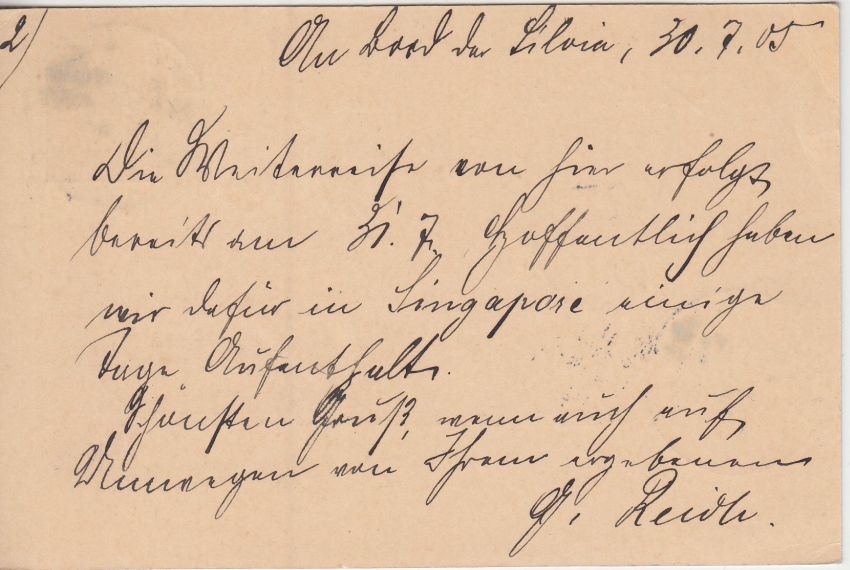 2)
An Bord der Silvia, 30.7.05
Die Weiterreise von hier erfolgt
bereits am 31.7. Hoffentlich haben
wir dafür in Singapore einige
Tage Aufenthalt.
Schönsten Gruß, wenn auch auf
Umwegen von Ihrem ergebenen
G. Reidl.